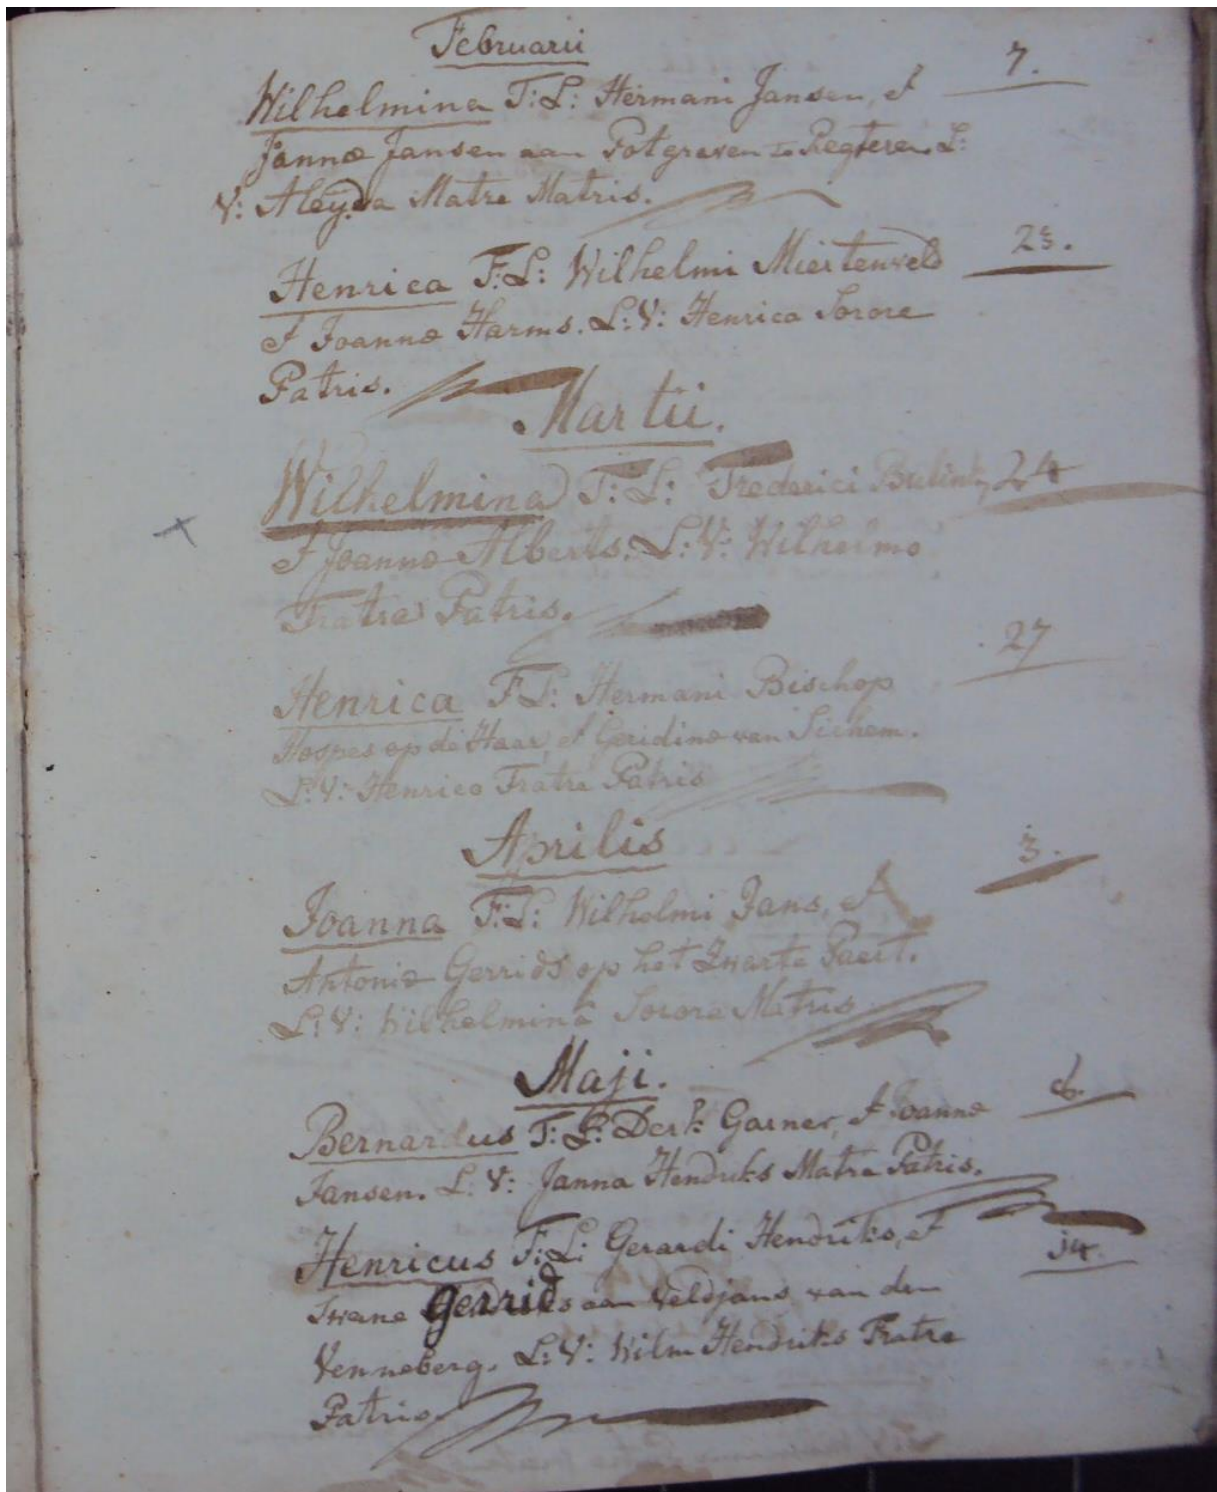 Februarii
Wilhelmina F: L: Hermani Jansen, et 7.
Jannæ Jansen aan Potgraven in Regteren. L:
V: Aleyda Matre Matris.
Henrica F: L: Wilhelmi Miertenveld 25.
et Joannæ Harms. L: V: Henrica Sorore
Patris.
Martii.
Wilhelmina F: L: Frederici Bulink, 24
et Joannæ Alberts. L: V: Wilhelmo
Fratre Patris.
27
Henrica F L: Hermani Bischop
Hospes op de Haar, et Geridinæ van Sichem.
L: V: Henrico Fratre Patris
Aprilis
3.
Joanna F: L: Wilhelmi Jans, et
Antoniæ Gerrids op het Zwarte Paert.
L: V: Wilhelminâ Sorore Matris
Maji.
Bernardus F: L: Derk Garner, et Joannæ 6.
Jansen. L: V: Janna Hendriks Matre Patris.
Henricus F: L: Gerardi Hendriks, et 14.
Swene Gerrids aan Veldjans van den
Venneberg. L: V: Wilm Hendriks Fratre
Patris.